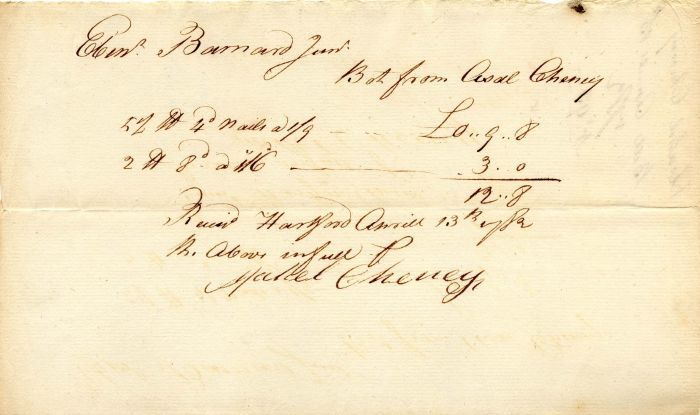 Ebenr. Barnard Junr.
Bot from Asal Cheney
5½ ℔ 4d Nails a 1/9 £0..9..8
2 ℔ 8d a 1/6 3..0
12..8
Receivd Hartford Aprill 13th 1782
the Above in full
Cheney